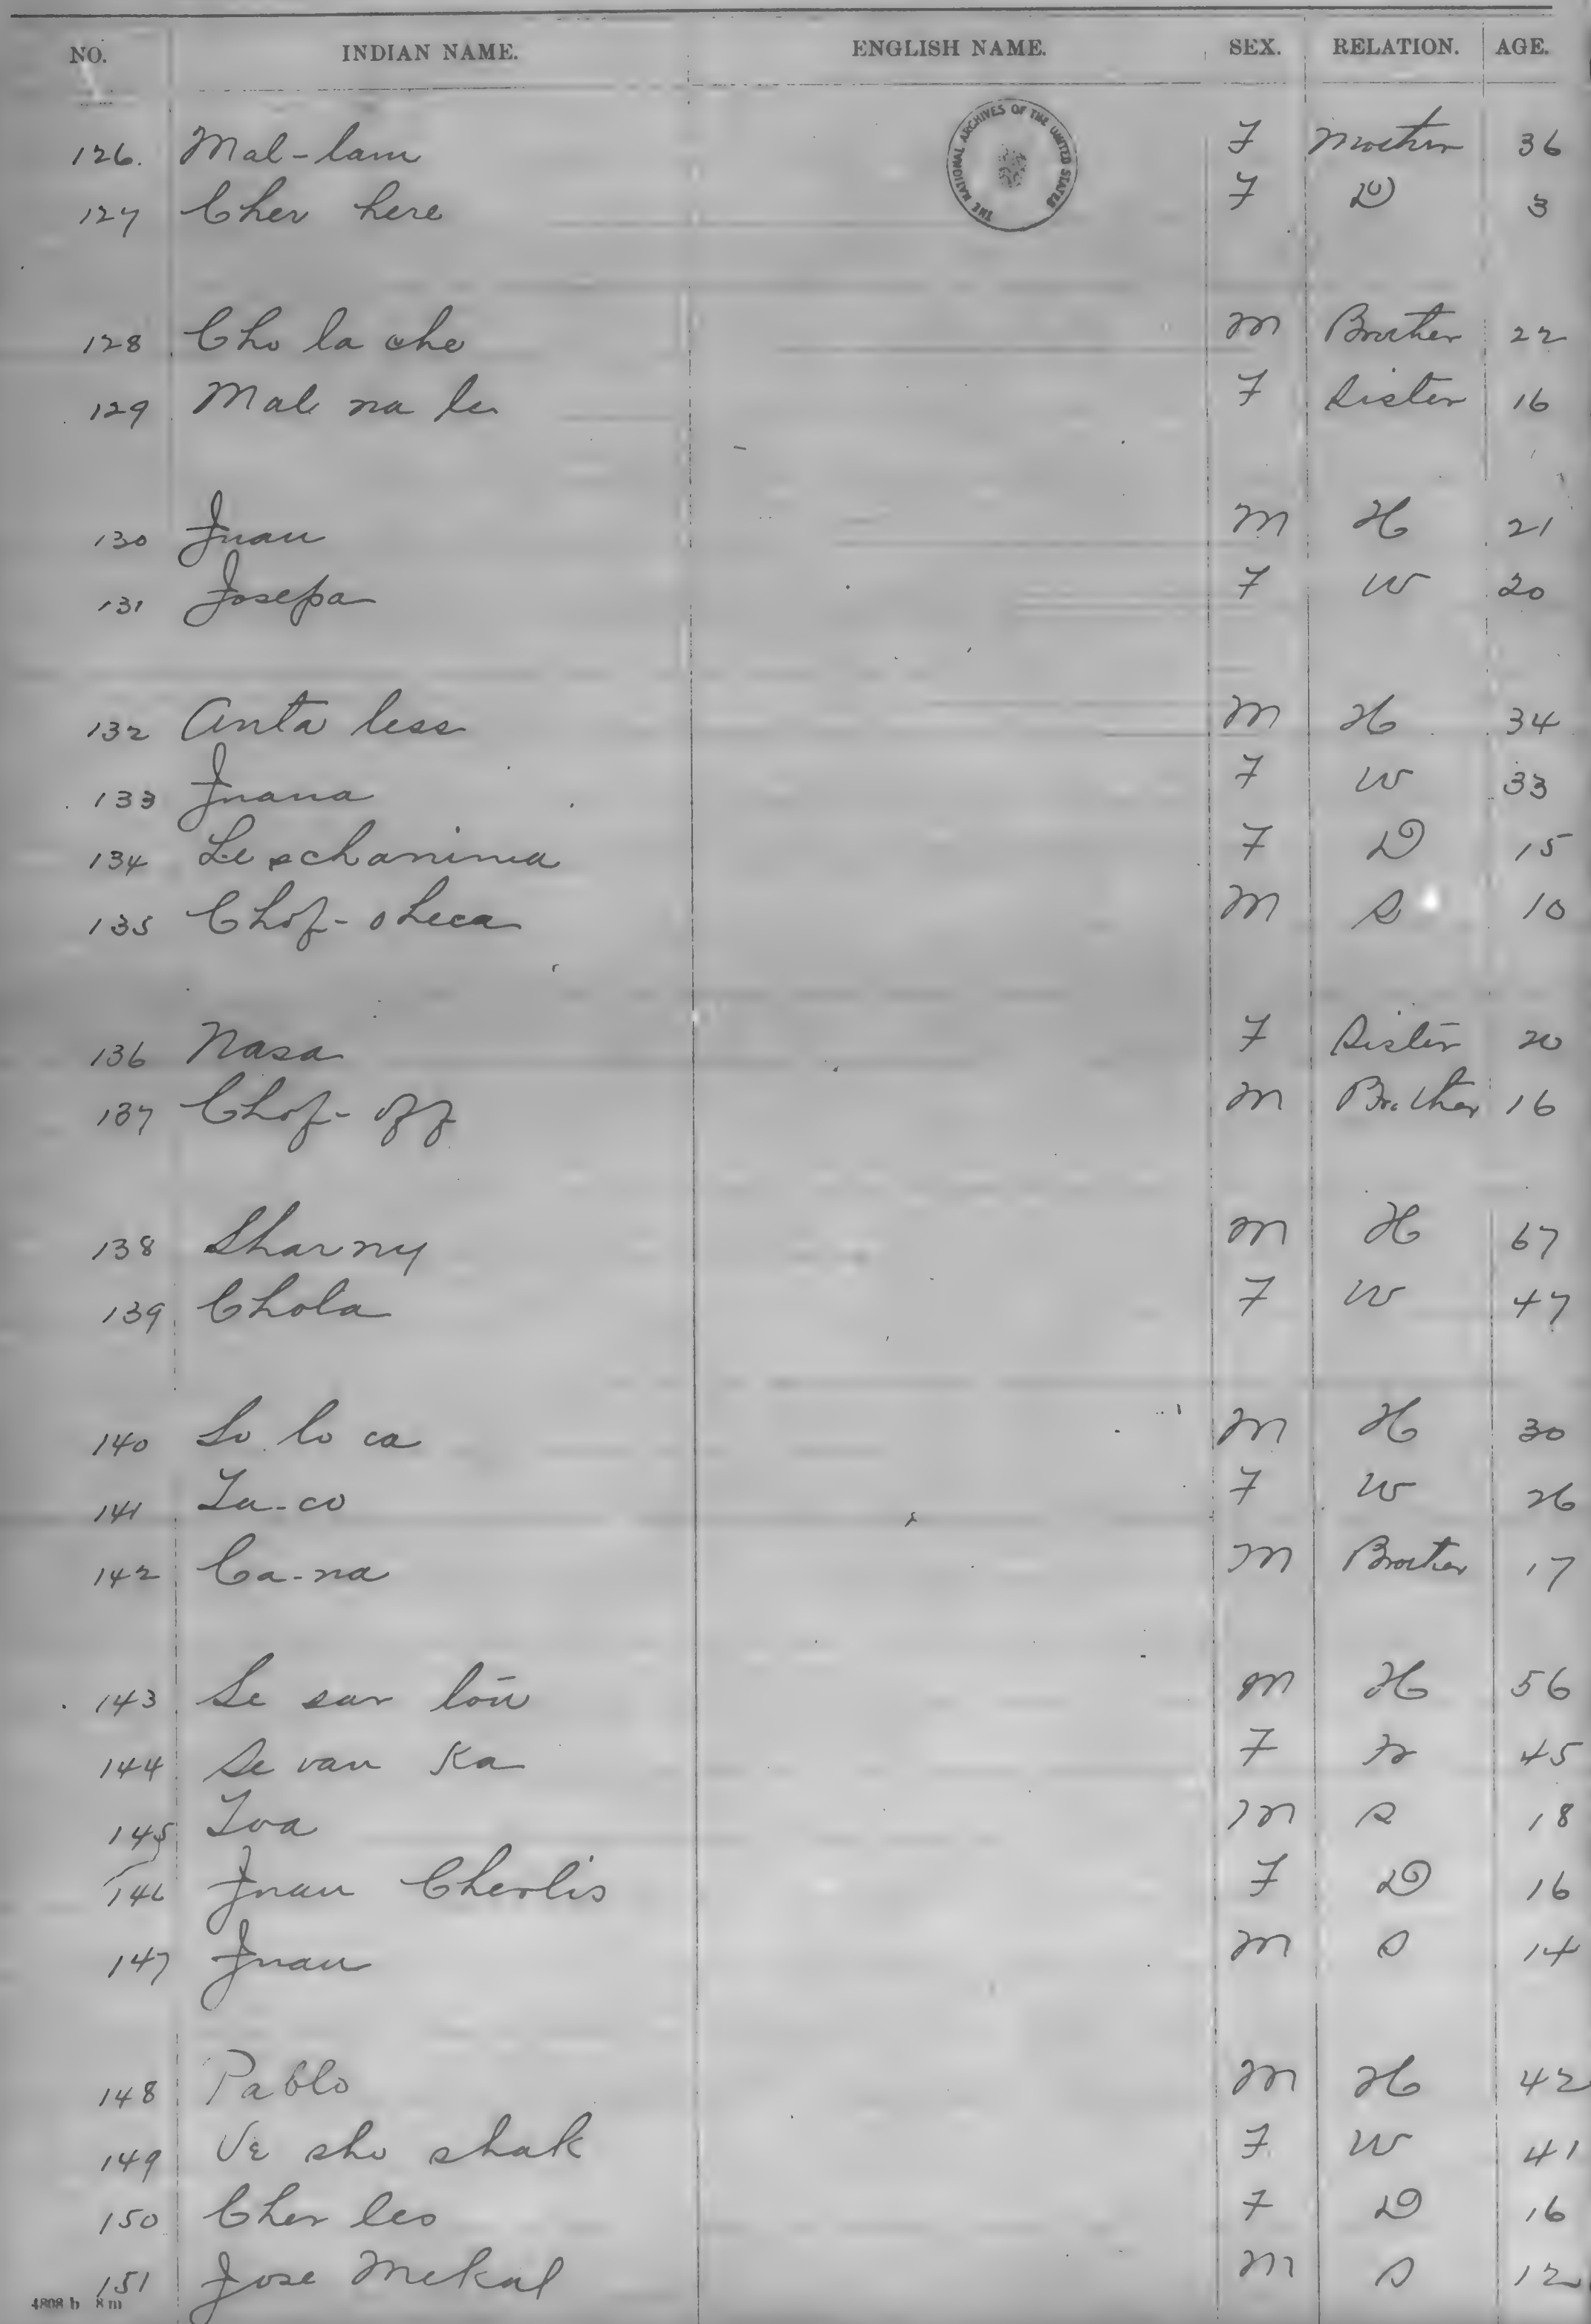 NO. INDIAN NAME. ENGLISH NAME. SEX. RELATION. AGE.
THE NATIONAL ARCHIVES OF THE UNITED STATES
126. Mal-lam F Mother 36
127 Cher here F D 3
128 Cho la che M Brother 22
129 Mal na le F Sister 16
130 Juan M H 21
131 Josepa F W 20
132 Anta less M H 34
133 Juana F W 33
134 Le schanima F D 15
135 Chof-oheca M S 10
136 Nasa F Sister 20
137 Chof-off M Brother 16
138 Sharny M H 67
139 Chola F W 47
140 So lo ca M H 30
141 La-co F W 26
142 Ca-na M Brother 17
143 Se sar lou M H 56
144 Se van Ka F W 45
145 Iva M S 18
146 Juan Cherlis F D 16
147 Juan M S 14
148 Pablo M H 42
149 Ve sho shak F W 41
150 Cher les F D 16
151 Jose Mekal M S 12
4808 b 8 m